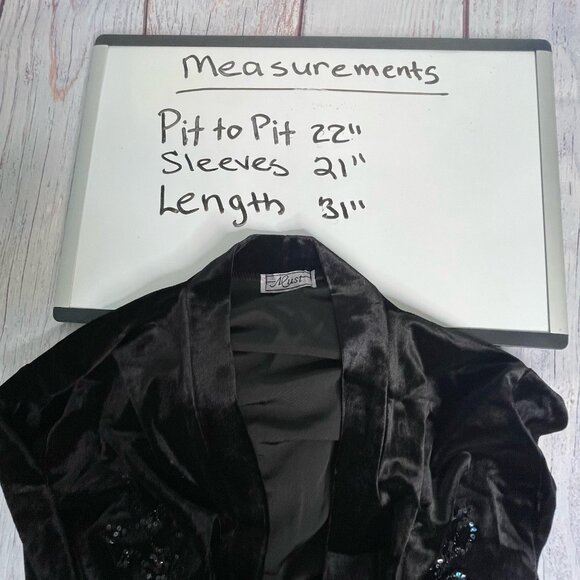 Measurements
Pit to Pit 22"
Sleeves 21"
Length 31"
Must